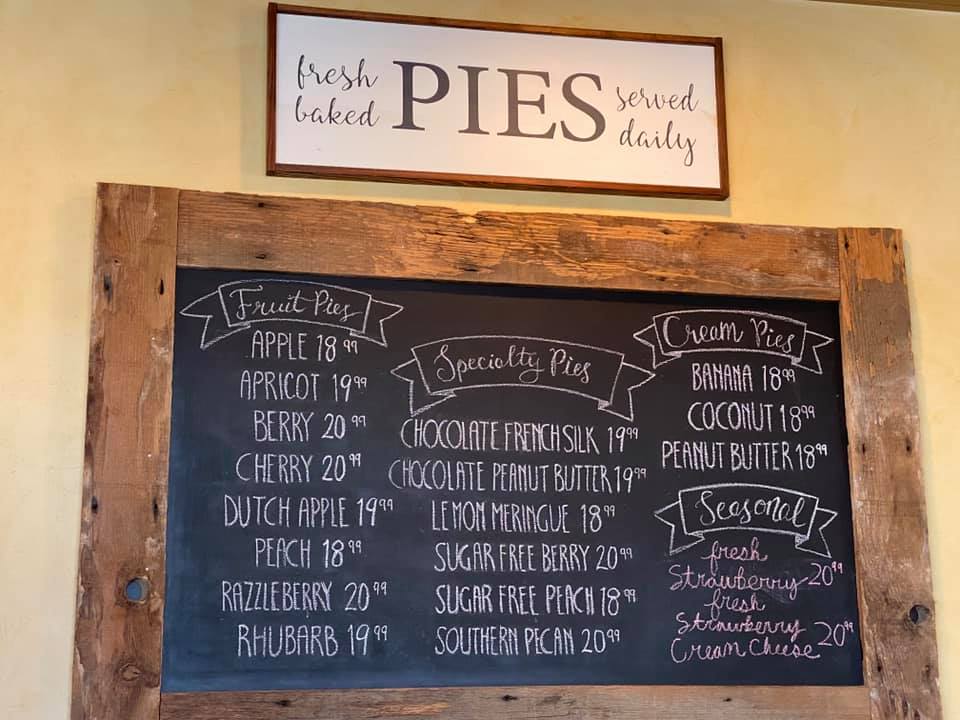 fresh baked PIES served daily
Fruit Pies
APPLE 18 99
APRICOT 19 99
BERRY 20 99
CHERRY 20 99
DUTCH APPLE 19 99
PEACH 18 99
RAZZLEBERRY 20 99
RHUBARB 19 99
Specialty Pies
CHOCOLATE FRENCH SILK 19 99
CHOCOLATE PEANUT BUTTER 19 99
LEMON MERINGUE 18 99
SUGAR FREE BERRY 20 99
SUGAR FREE PEACH 18 99
SOUTHERN PECAN 20 99
Cream Pies
BANANA 18 99
COCONUT 18 99
PEANUT BUTTER 18 99
Seasonal
fresh
Strawberry 20 99
fresh
Strawberry
Cream Cheese 20 99